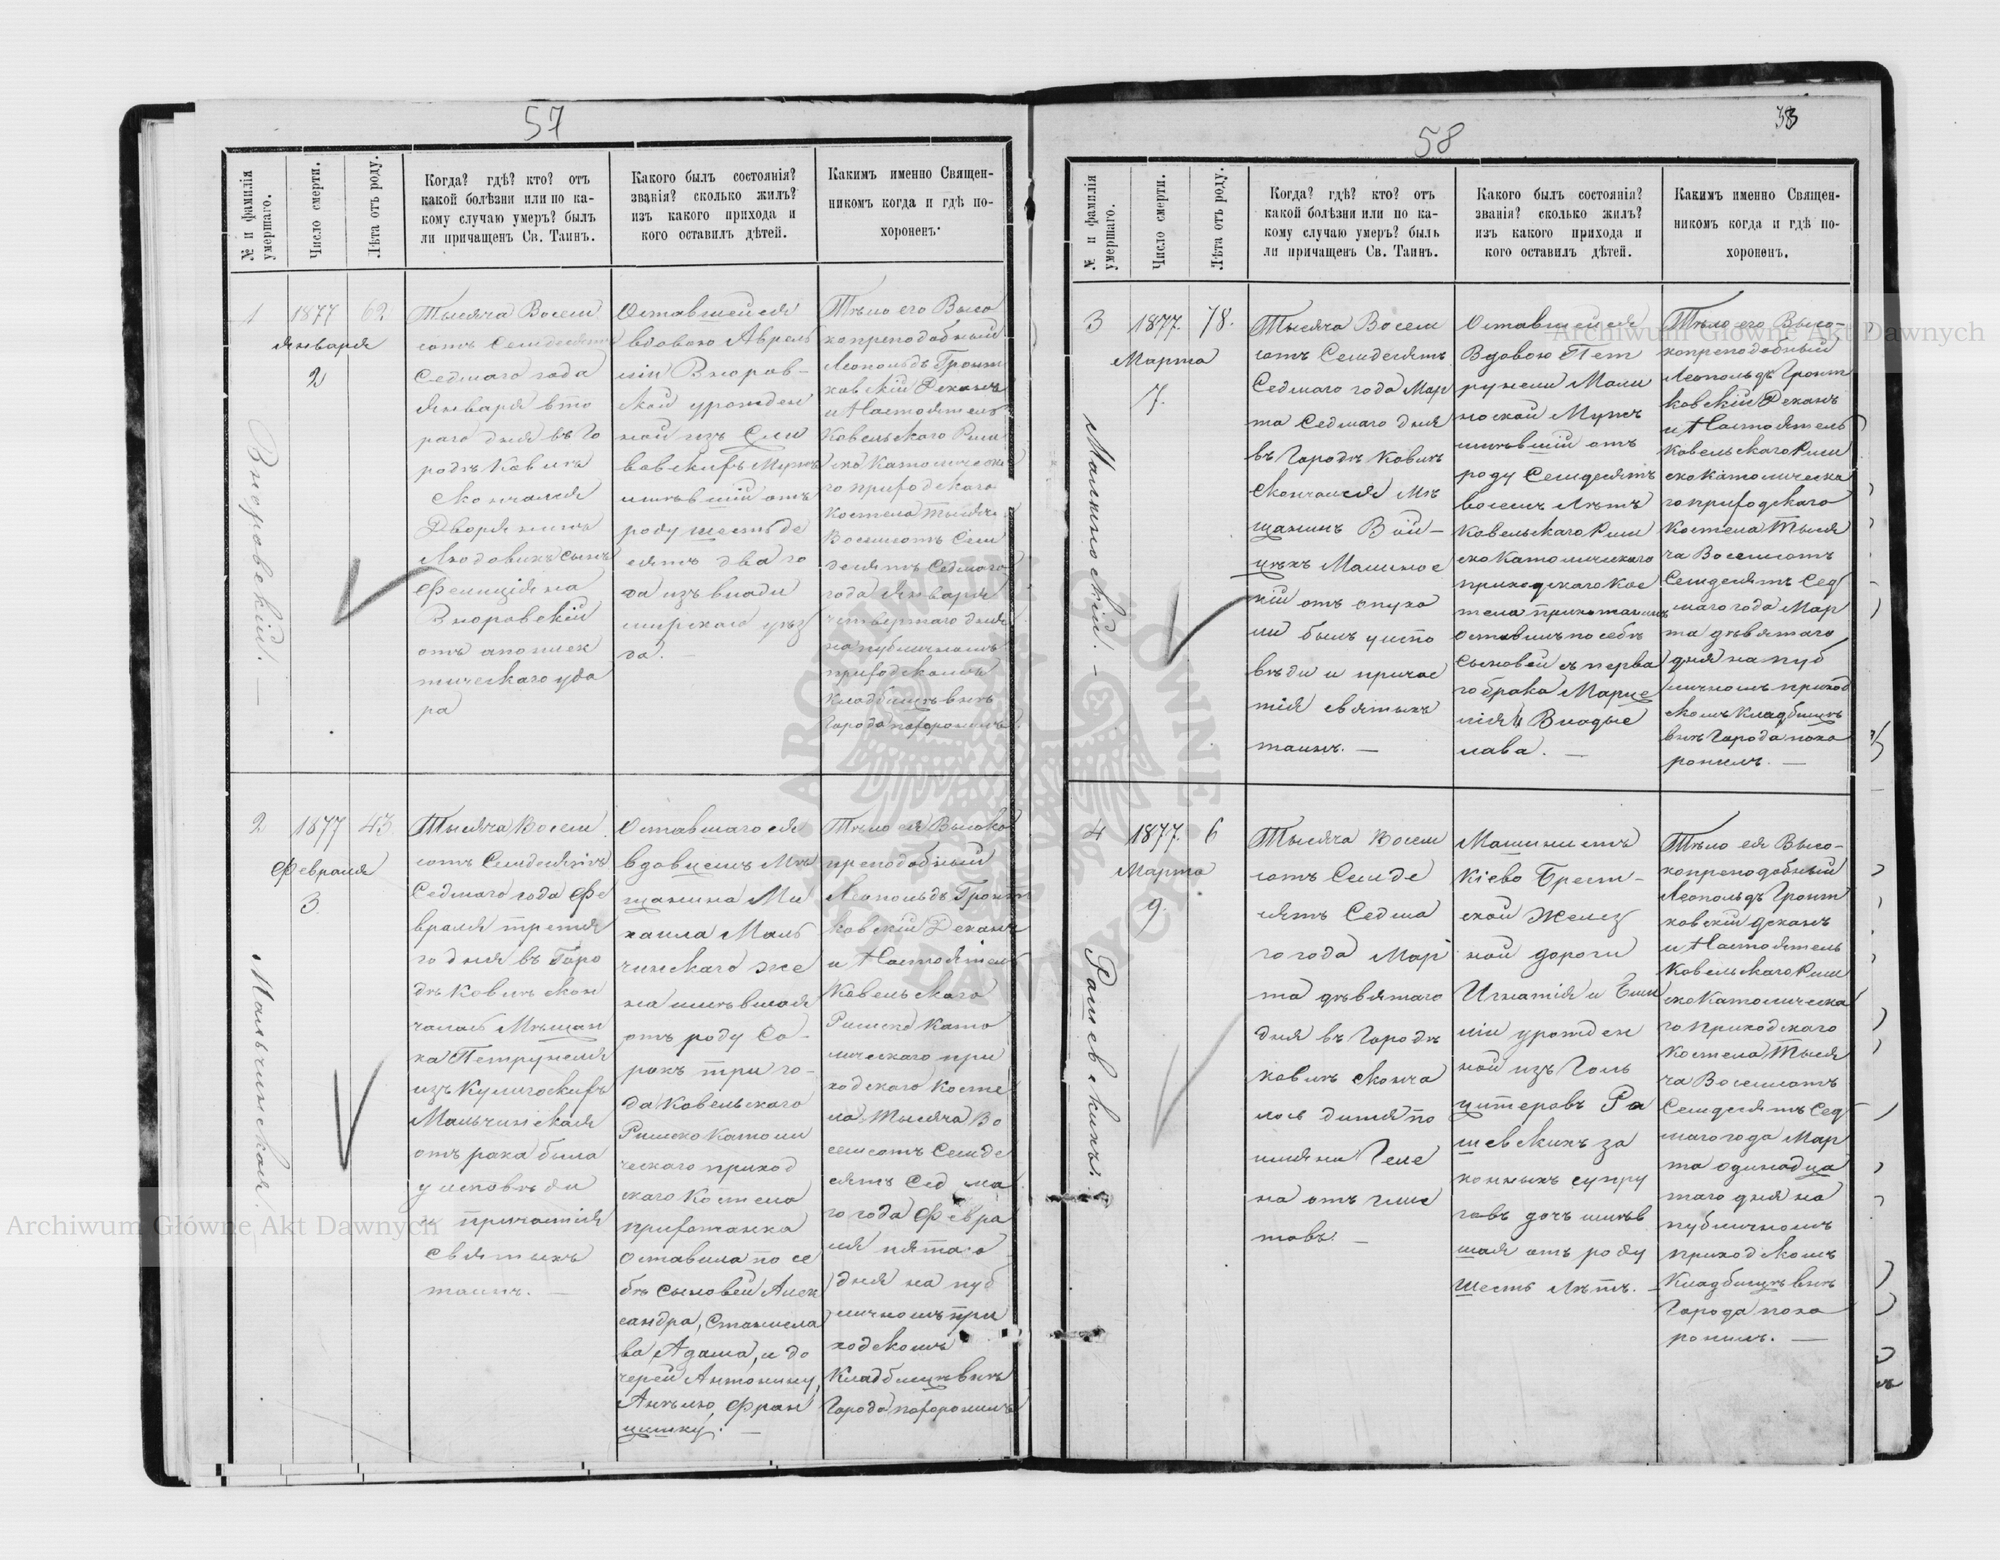 57
№ и фамилія умершаго.
Число смерти.
Лѣта отъ роду.
Когда? гдѣ? кто? отъ
какой болѣзни или по ка-
кому случаю умеръ? былъ
ли причащенъ Св. Таинъ.
Какого былъ состоянія?
званія? сколько жилъ?
изъ какого прихода и
кого оставилъ дѣтей.
Каким именно Священ-
никомъ когда и гдѣ по-
хороненъ.
1
Вноровскій. —
1877
января
2
62.
Тысяча Восем
сотъ Семдесятъ
Седмаго года
января вто
раго дня въ Го
родѣ Ковлѣ
скончался
Дворянинъ
Людовикъ сынъ
Фелиціяна
Вноровскій
отъ апоплек
тическаго уда
ра
Оставшейся
вдовою Аврел
ліи Вноров-
ской урожден
ной изъ
мужъ
имѣвшій отъ
роду шестьде
сятъ два го
да изъ Влади
мирскаго уѣз
да. —
Тѣло его Высо
копреподобный
Леопольдъ Гронт
ковскій Деканъ
и Настоятель
Ковельскаго Рим
ско Католическа
го приходскаго
костела тысяча
Восемсотъ Сем
десятъ Седмаго
года Января
четвертаго дня
на публичномъ
приходскомъ
кладбищѣ внѣ
Города похоронилъ
2
Мальчинская.
1877
Февраля
3
43.
Тысяча Восем
сотъ Семдесятъ
Седмаго года Фе
враля третья
го дня въ Горо
дѣ Ковлѣ скон
чалась Мѣщан
ка Петрунеля
изъ Кулигоскихъ
Мальчинская
отъ рака была
у исповѣди
и причастія
Святыхъ
таинъ. —
Оставшагося
вдовцемъ Мѣ
щанина Ми
хаила Маль
чинскаго же
на имѣвшая
отъ роду Со-
рокъ три го-
да Ковельскаго
Римско Католи
ческаго приход
скаго Костела
прихожанка
Оставила по се
бѣ сыновей Алек
сандра, Станисла
ва Адама, и до
черей Антонину,
Анѣлю, Фран
цишку. —
Тѣло ея Высоко
преподобный
Леопольдъ Гронт
ковскій Деканъ
и Настоятель
Ковельскаго
Римско Като
лическаго при
ходскаго Косте
ла Тысяча Во
семсотъ Семде
сятъ Сед ма
го года Февра
ля пятаго
дня на пуб
личномъ при
ходскомъ
Кладбищѣ внѣ
Города похоронилъ
58
33
№ и фамилія умершаго.
Число смерти.
Лѣта отъ роду.
Когда? гдѣ? кто? отъ
какой болѣзни или по ка-
кому случаю умеръ? былъ
ли причащенъ Св. Таинъ.
Какого былъ состоянія?
званія? сколько жилъ?
изъ какого прихода и
кого оставилъ дѣтей.
Каким именно Священ-
никомъ когда и гдѣ по-
хороненъ.
3
Малиноскій. —
1877.
Марта
7.
78.
Тысяча Восем
сотъ Семдесятъ
Седмаго года Мар
та Седмаго дня
въ Городѣ Ковлѣ
скончался Мѣ
щанинъ Вой-
цѣхъ Малинос
кій отъ опухо
ли былъ у испо
вѣди и причас
тія святыхъ
таинъ. —
Оставшейся
Вдовою Пет
рунели Мали
ноской Мужъ
имѣвшій отъ
роду Семдесятъ
восемь Лѣтъ
Ковельскаго Рим
ско Католическаго
приходскаго Кос
тела прихожанинъ
Оставилъ по себѣ
сыновей съ перва
го брака Марце
лія и Владыс
лава. —
Тѣло его Высо-
копреподобный
Леопольдъ Гронт
ковскій Деканъ
и Настоятель
Ковельскаго Рим
ско Католическа
го приходскаго
Костела Тыся
ча Восемсотъ
Семдесятъ Сед
маго года Мар
та девятаго
дня на пуб
личномъ приход
скомъ Кладбищѣ
внѣ Города похо
ронилъ. —
4
Рашевскихъ.
1877.
Марта
9.
6
Тысяча Восем
сотъ Семде
сятъ Седма
го года Мар
та девятаго
дня въ Городѣ
Ковлѣ сконча
лось дитя по
имяна Геле
на отъ глис
товъ. —
Машинистъ
Кіево Брест-
ской Желез
ной дороги
Игнатія и Еми
ліи урожден
ной изъ Голь
цтеровъ Ра
шевскихъ за
конныхъ супру
говъ дочъ имѣв
шая отъ роду
шесть лѣтъ. —
Тѣло ея Высо-
копреподобный
Леопольдъ Гронт
ковскій деканъ
и Настоятель
Ковельскаго Рим
ско Католическа
го приходскаго
Костела Тыся
ча Восемсотъ
Семдесятъ Сед
маго года Мар
та одинадца
таго дня на
публичномъ
приходскомъ
Кладбищѣ внѣ
Города похо
ронилъ. —
Archiwum Główne Akt Dawnych
Archiwum Główne Akt Dawnych
ARCHIWUM GŁÓWNE AKT DAWNYCH